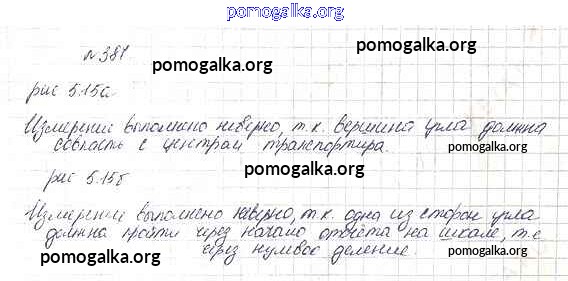 pomogalka.org
№381.
pomogalka.org
pomogalka.org
рис 5.15а.
pomogalka.org
Измерение выполнено неверно, т.к. вершина угла должна
совпасть с центром транспортира.
pomogalka.org
рис 5.15б
pomogalka.org
Измерение выполнено неверно, т.к. одна из сторон угла
должна пройти через начало отсчёта на шкале, т.е
через нулевое деление.
pomogalka.org
pomogalka.org